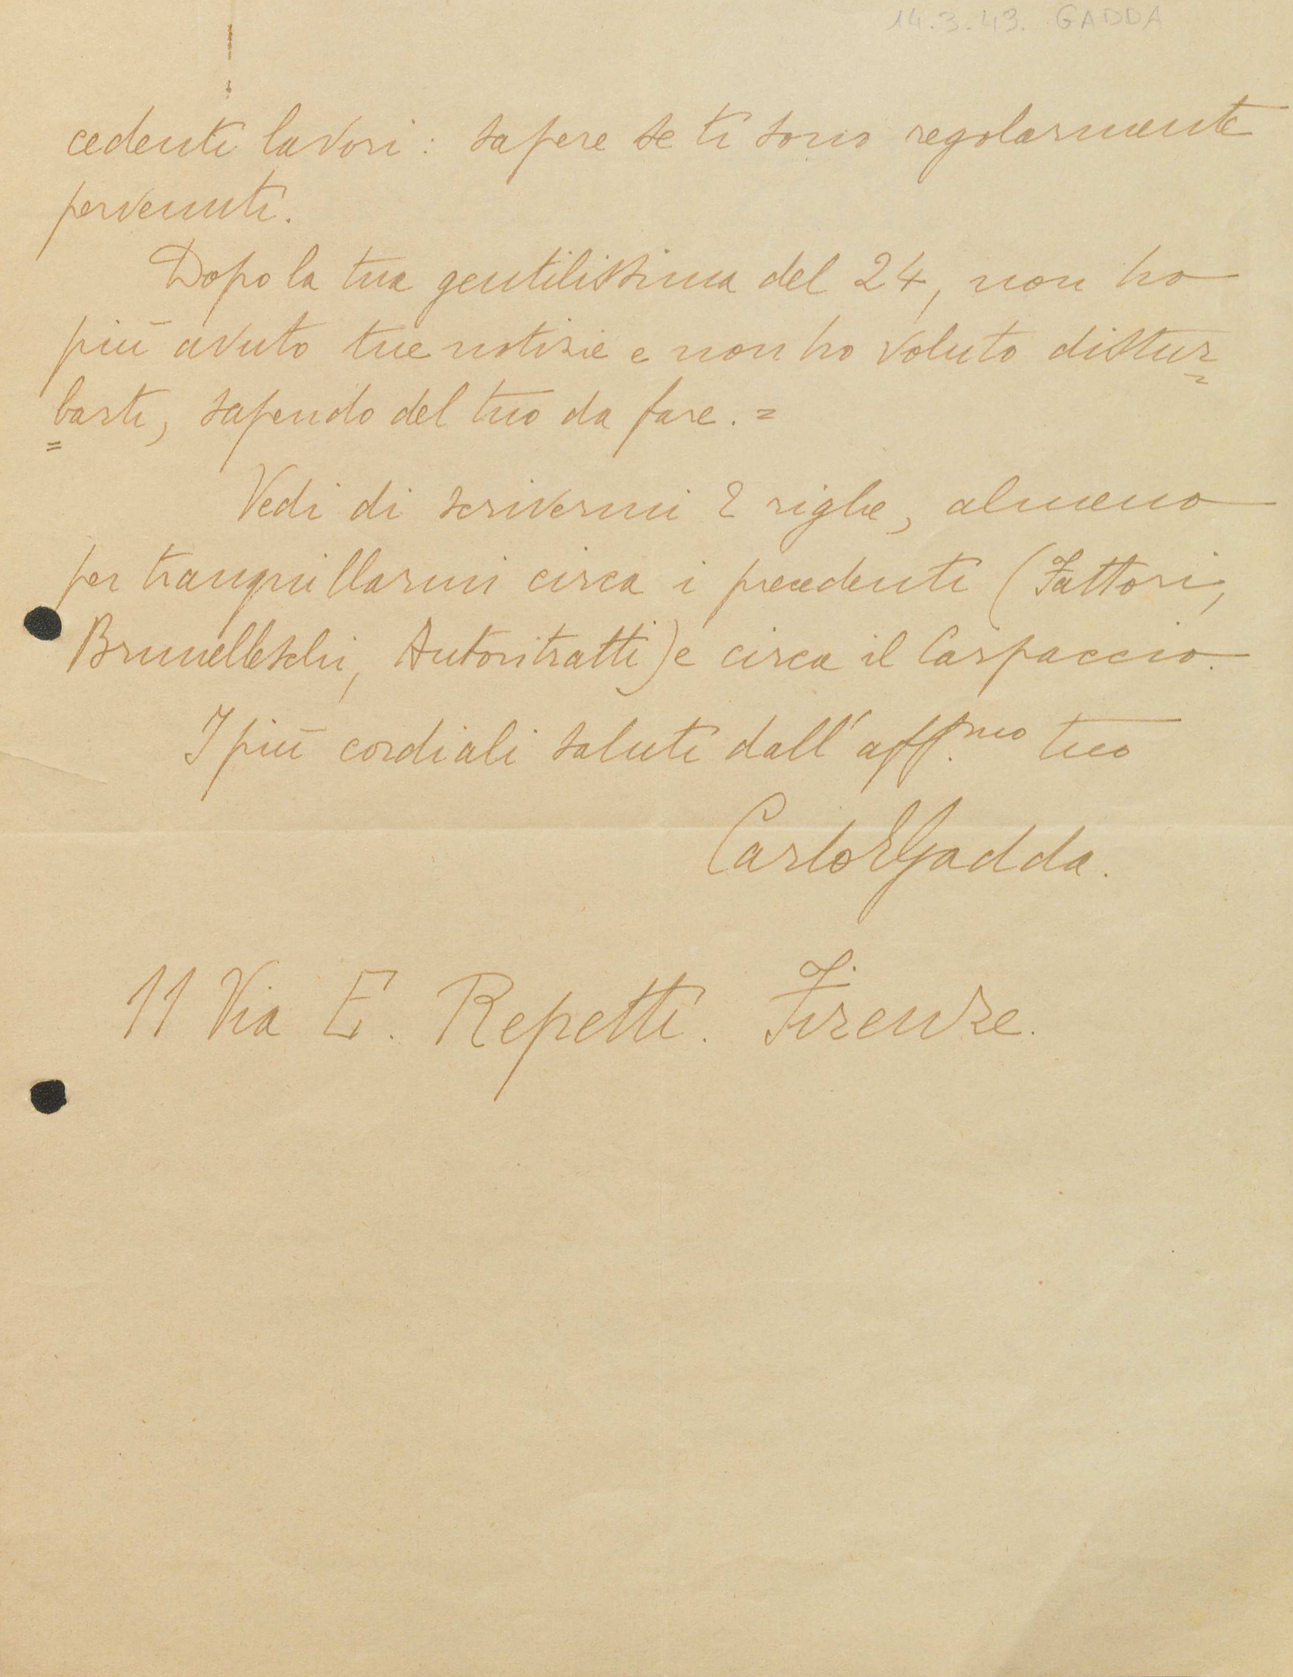 14.3.43. GADDA
cedenti lavori : sapere se ti sono regolarmente
pervenuti.
Dopo la tua gentilissima del 24, non ho
più avuto tue notizie e non ho voluto distur=
=barti, sapendo del tuo da fare. =
Vedi di scrivermi 2 righe, almeno
per tranquillarmi circa i precedenti (Fattori,
Brunelleschi, Autoritratti) e circa il Carpaccio.
I più cordiali saluti dall'aff.mo tuo
Carlo E Gadda.
11 Via E. Repetti. Firenze.